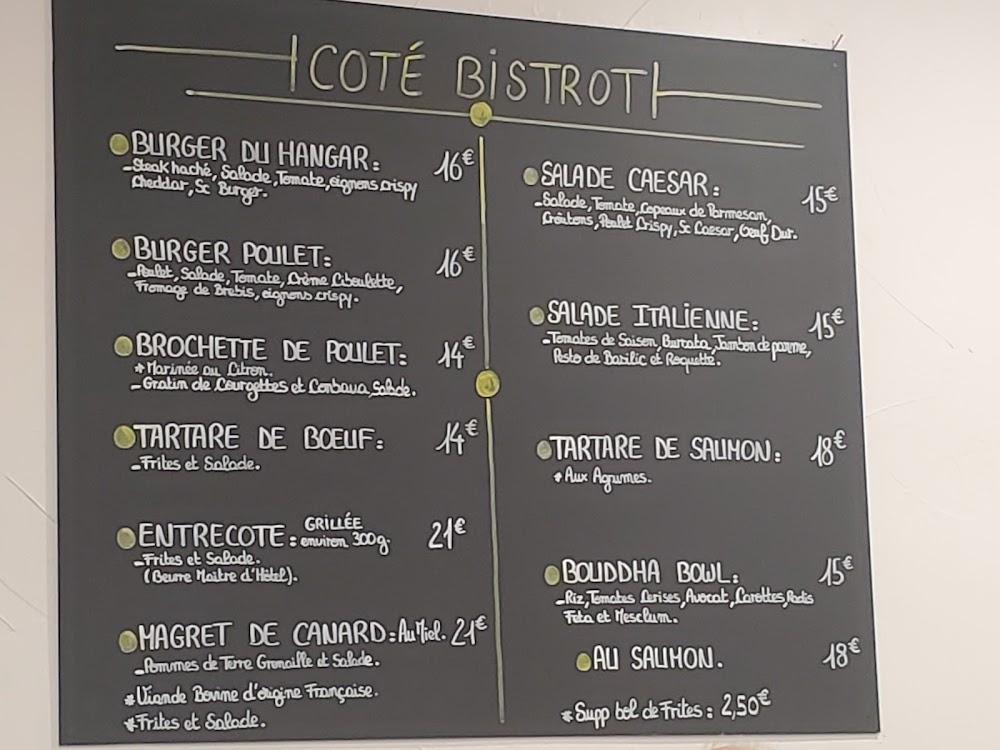 COTÉ BISTROT
BURGER DU HANGAR: 16€
-Steak haché, Salade, Tomate, oignons crispy
Cheddar, Sc Burger.
BURGER POULET: 16€
-Poulet, Salade, Tomate, Crème Ciboulette,
Fromage de Brebis, oignons crispy.
BROCHETTE DE POULET: 14€
* Marinée au Citron.
-Gratin de Courgettes et Conbava, Salade.
TARTARE DE BOEUF: 14€
-Frites et Salade.
ENTRECOTE: GRILLÉE environ 300g. 21€
-Frites et Salade.
(Beurre Maitre d'Hôtel).
MAGRET DE CANARD: Au Miel. 21€
-Pommes de Terre Grenaille et Salade.
* Viande Bovine d'origine Française.
* Frites et Salade.
SALADE CAESAR: 15€
-Salade, Tomate, Copeaux de Parmesan,
Croûtons, Poulet Crispy, Sc Caesar, Oeuf Dur.
SALADE ITALIENNE: 15€
-Tomates de Saison, Burrata, Jambon de parme,
Pesto de Basilic et Roquette.
TARTARE DE SAUMON: 18€
* Aux Agrumes.
BOUDDHA BOWL: 15€
-Riz, Tomates Cerises, Avocat, Carottes, Radis
Feta et Mesclum.
AU SAUMON. 18€
* Supp bol de Frites: 2,50€